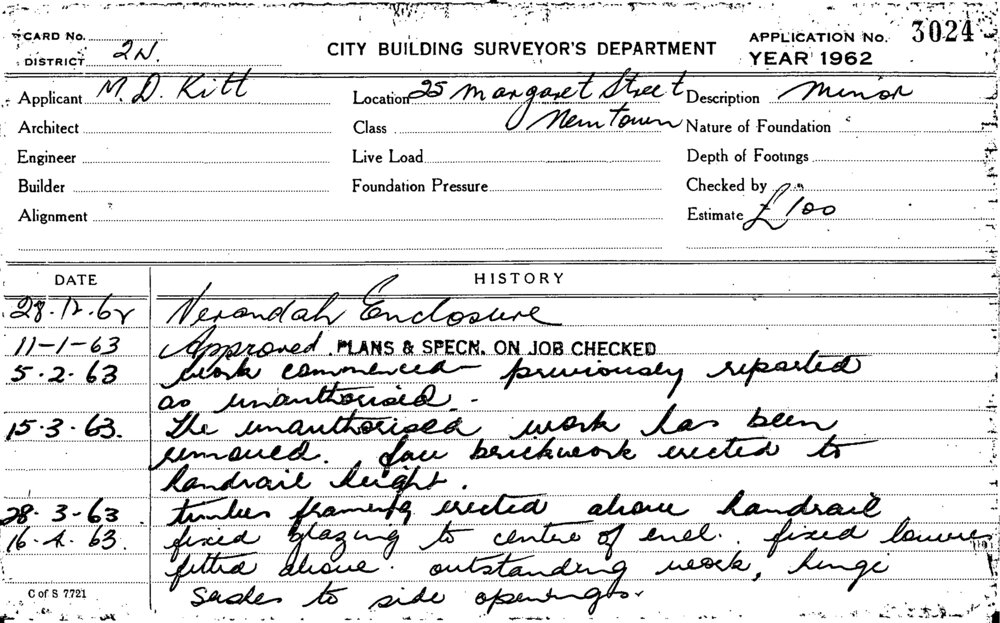 CARD No.
DISTRICT 2N.
CITY BUILDING SURVEYOR'S DEPARTMENT
APPLICATION No. 3024
YEAR 1962
Applicant M. D. Kitt
Location 25 Margaret Street
Newtown
Description Minor
Architect
Class
Nature of Foundation
Engineer
Live Load
Depth of Footings
Builder
Foundation Pressure
Checked by
Alignment
Estimate £100
DATE HISTORY
28.12.62 Verandah Enclosure
11-1-63 Approved PLANS & SPECN. ON JOB CHECKED
5.2.63 work commenced previously reported
as unauthorised.
15.3.63. The unauthorised work has been
removed. brickwork erected to
handrail height.
28.3.63 timber framing erected above handrail
16.4.63. fixed glazing to centre of encl. fixed louvres
fitted above. outstanding work, hinge
sashes to side openings.
C of S 7721